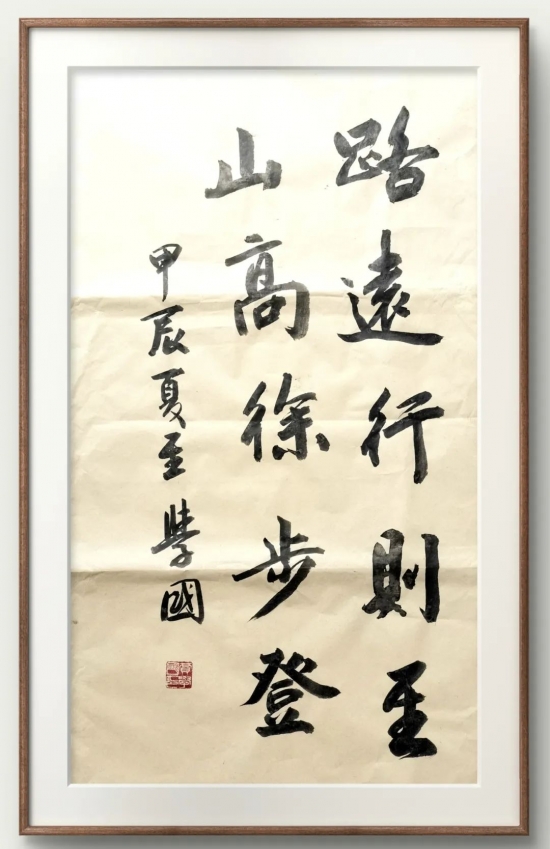 路遠行則至
山高徐步登
甲辰夏至 學國